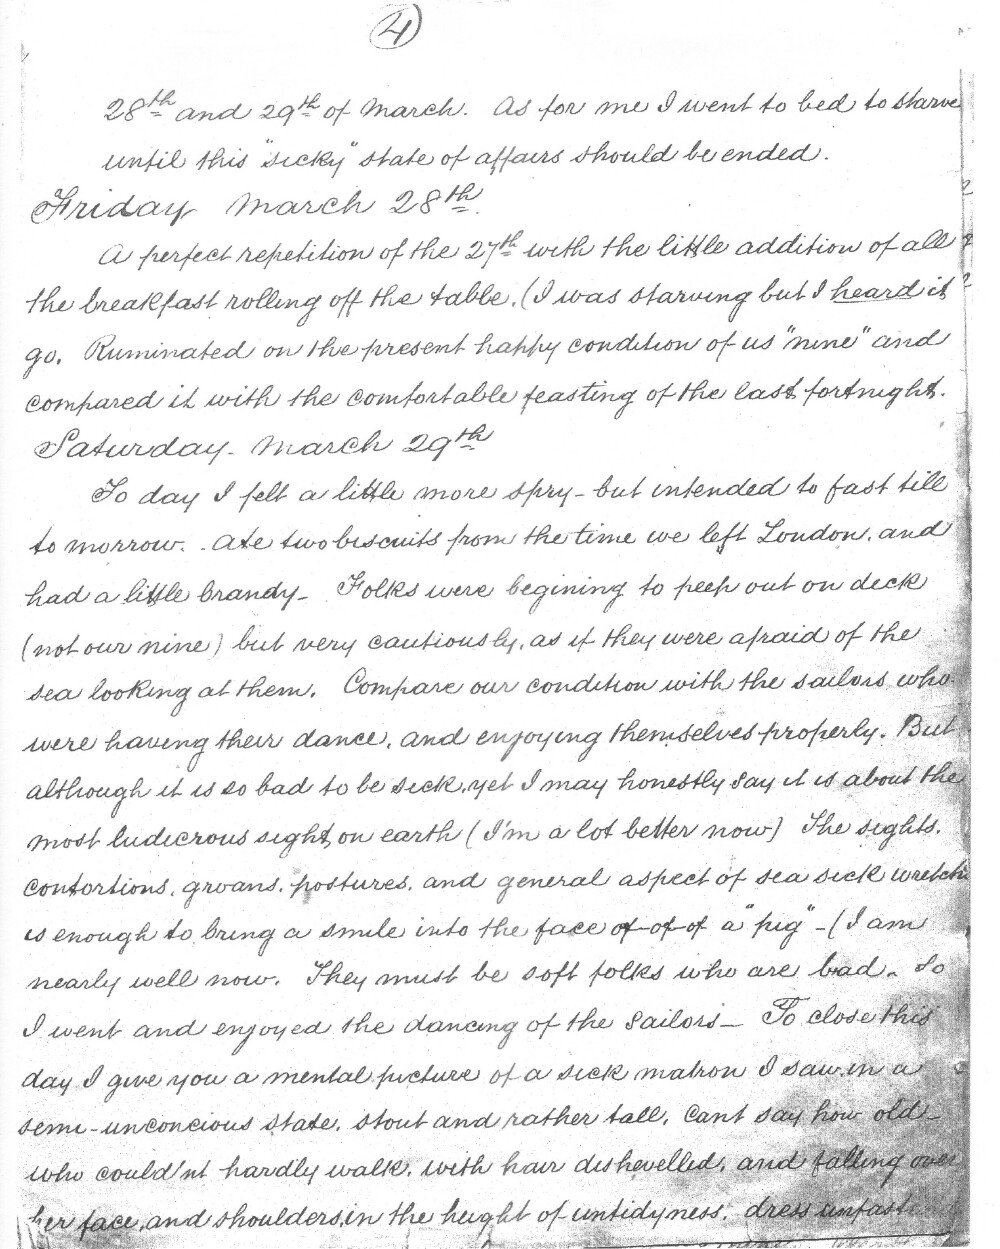 4
28th and 29th of March. As for me I went to bed to starve
until this "sicky" state of affairs should be ended.
Friday March 28th.
A perfect repetition of the 27th with the little addition of all
the breakfast rolling off the table. (I was starving but I heard it
go. Ruminated on the present happy condition of us "nine" and
compared it with the comfortable feasting of the last fortnight.
Saturday - March 29th
To day I felt a little more spry - but intended to fast till
to morrow. Ate two biscuits from the time we left London, and
had a little brandy - Folks were begining to peep out on deck
(not our nine) but very cautiously, as if they were afraid of the
sea looking at them. Compare our condition with the sailors who
were having their dance, and enjoying themselves properly. But
although it is so bad to be sick, yet I may honestly say it is about the
most ludicrous sight on earth (I'm a lot better now) The sights,
contortions, groans, postures, and general aspect of sea sick wretch
is enough to bring a smile into the face of-of-of a "pig" - (I am
nearly well now. They must be soft folks who are bad. So
I went and enjoyed the dancing of the sailors - To close this
day I give you a mental picture of a sick matron I saw in a
semi-unconcious state, stout and rather tall, cant say how old -
who could'nt hardly walk, with hair dishevelled, and falling over
her face, and shoulders, in the height of untidyness, dress unfast